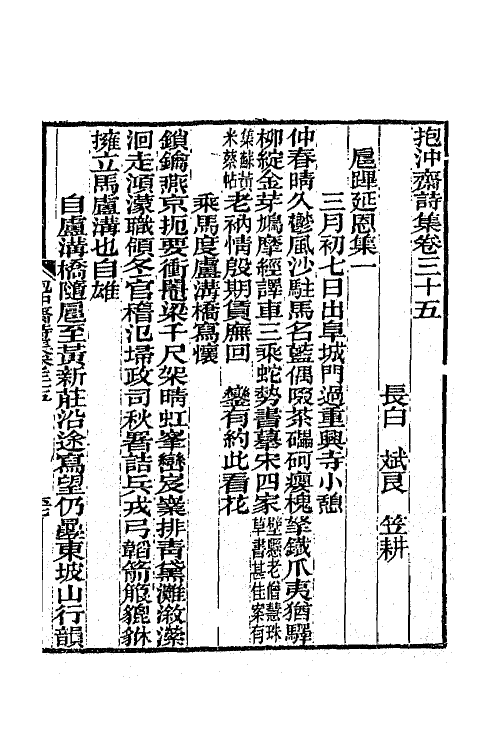 抱沖齋詩集卷三十五
長白 斌良 笠耕
扈蹕延恩集一
三月初七日出阜城門過重興寺小憩
仲春晴久鬱風沙駐馬名藍偶啜茶礧砢癭槐拏鐵爪夷猶驛
柳綻金芽鳩摩經譯車三乘蛇勢書摹宋四家壁懸老僧慧珠草書甚佳案有
集蘇黃米蔡帖老衲情殷期賁廡回 鑾有約此看花
乘馬度盧溝橋寫懷
鎖鑰燕京扼要衝閣梁千尺架晴虹峯巒岌嶪排青黛灘漵濼
洄走澒濛職領冬官稽氾埽政司秋署詰兵戎弓韜箭箙貔貅
擁立馬盧溝也自雄
自盧溝橋隨扈至黃新莊沿途寫望仍疊東坡山行韻